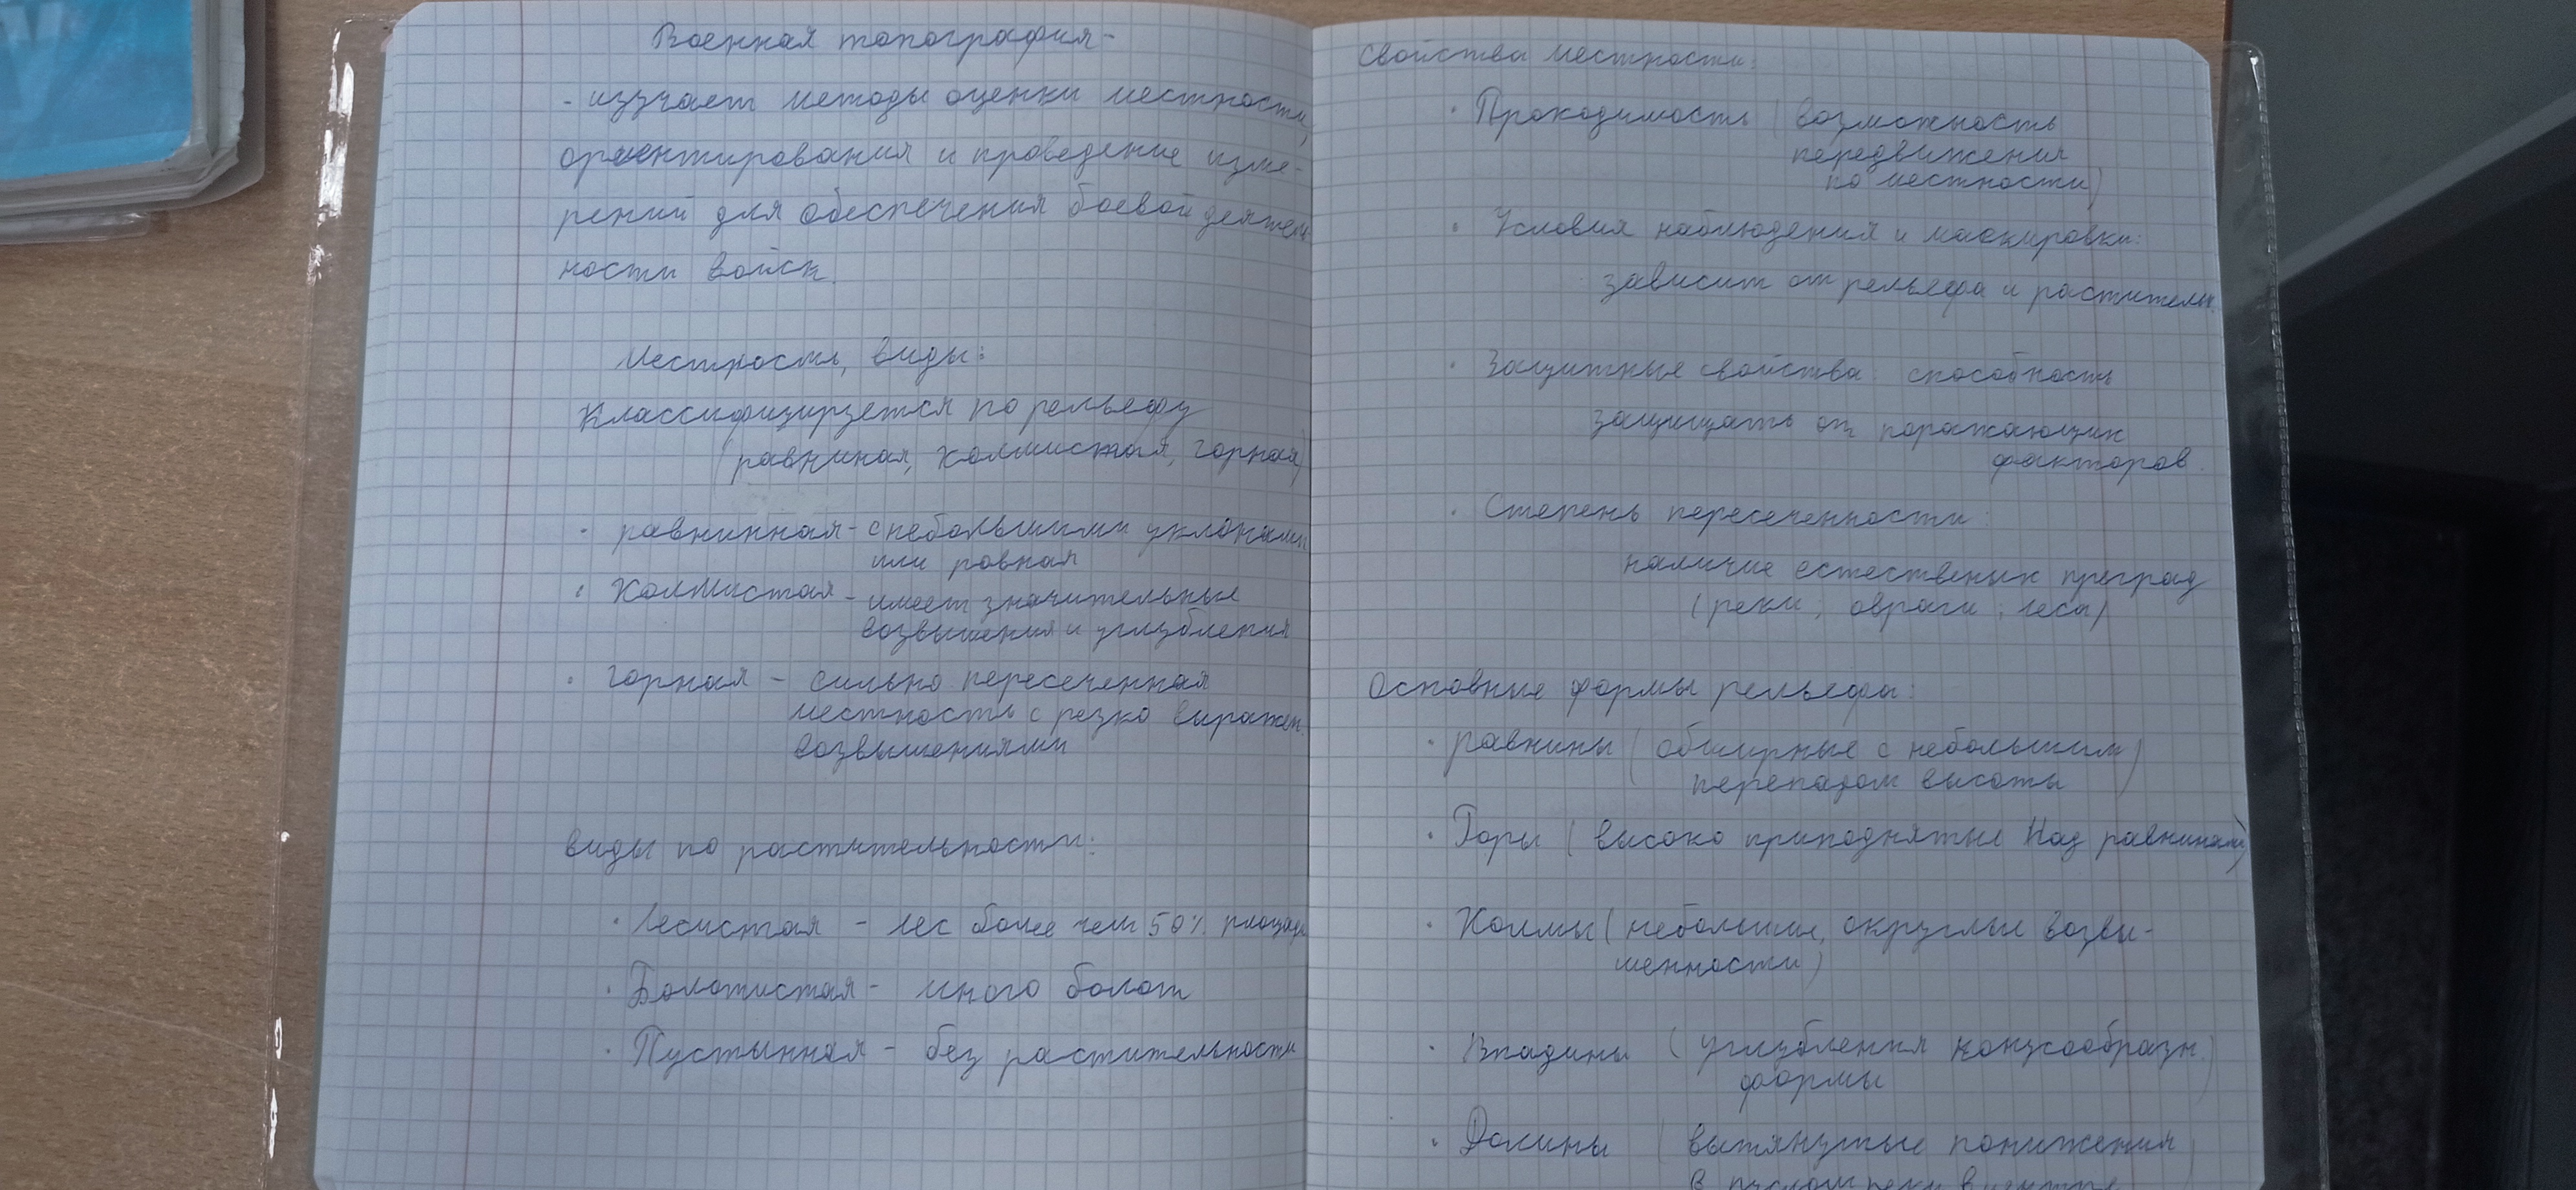 Военная топография-
- изучает методы оценки местности,
ориентирования и проведение изме-
рений для обеспечения боевой деятель
ности войск.
Местность, виды:
Классифицируется по рельефу
(равниная, холмистая, горная)
· равнинная - с небольшими уклонами
или ровная
· Холмистая - имеет значительные
возвышения и углубления
· горная - сильно пересеченная
местность с резко выражен.
возвышениями
виды по растительности:
· Лесистая - лес более чем 50% площади
· Болотистая - много болот
· Пустынная - без растительности
Свойства местности:
· Проходимость (возможность
передвижения
по местности)
· Условия наблюдения и маскировки:
зависит от рельефа и раститель.
· Защитные свойства: способность
защищать от поражающих
факторов.
· Степень пересеченности:
наличие естественых преград
(реки, овраги, леса)
Основные формы рельефа:
· равнины (обширные с небольшим)
перепадом высоты
· Горы (высоко приподнятые над равнинами)
· Холмы (небольшие, округлые возвы-
шенности)
· Впадины (углубления конусообразн.)
формы
· Долины (вытянутые понижения)